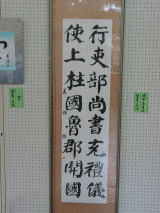 行吏部尚書充禮儀
使上柱國魯郡開國